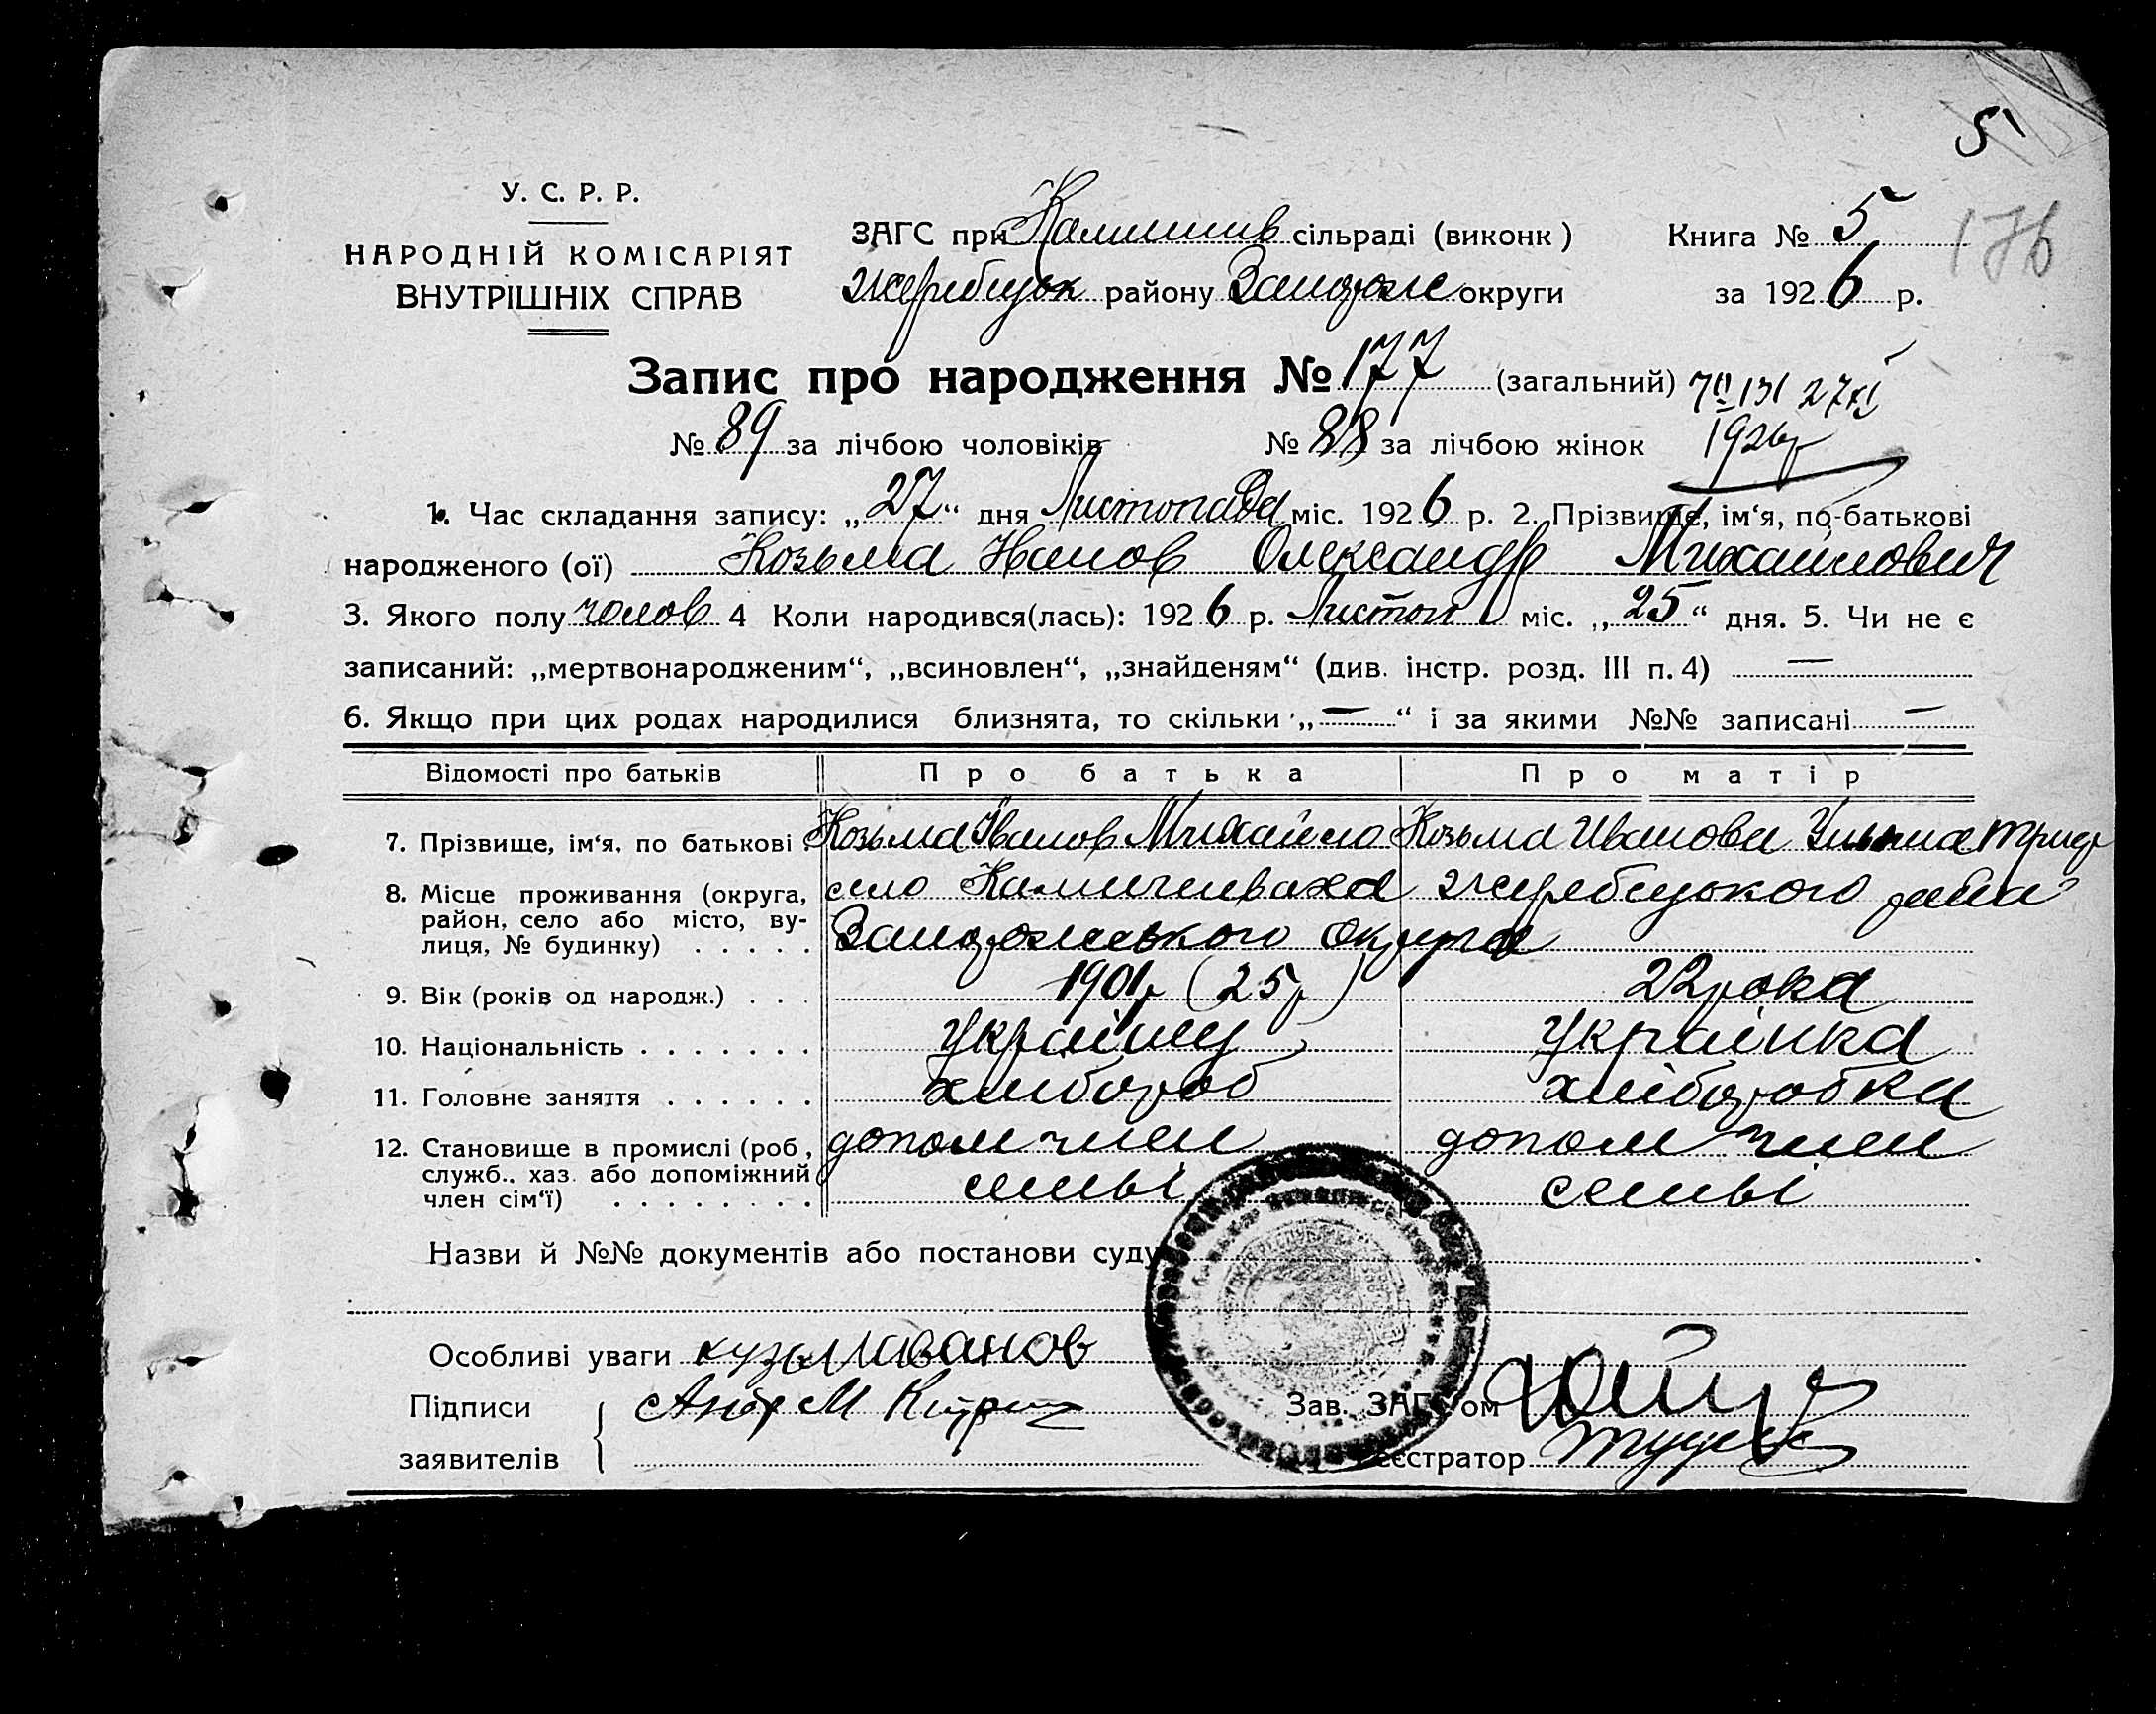 5
У. С. Р. Р.
НАРОДНІЙ КОМІСАРІЯТ
ВНУТРІШНІХ СПРАВ
ЗАГС при Камишив сільраді (виконк)
Жеребецьк району Запорож округи
Книга № 5
176
за 1926 р.
Запис про народження № 177 (загальний)
№ 89 за лічбою чоловіків № 88 за лічбою жінок
1926р
1. Час складання запису: „27“ дня Листопада міс. 1926 р. 2. Прізвище, ім‘я, по-батькові
народженого (ої) Козьма Иванов Олександр Михайлович
3. Якого полу чолов 4 Коли народився(лась): 1926 р. Листоп міс. „25“ дня. 5. Чи не є
записаний: „мертвонародженим“, „всиновлен“, „знайденям“ (див. інстр. розд. III п. 4) —
6. Якщо при цих родах народилися близнята, то скільки „—“ і за якими №№ записані —
Відомості про батьків Про батька Про матір
7. Прізвище, ім‘я, по батькові . Козьма Іванов Михайло Козьма Иванова
8. Місце проживання (округа, район, село або місто, вулиця, № будинку) . . . . .
село Камишеваха Жеребецького района
Запорожського округа
9. Вік (років од народж.) . . . 1901р (25р) 22 рока
10. Національність . . . . . . . Українец Українка
11. Головне заняття . . . . . . хлібороб хліборобка
12. Становище в промислі (роб, служб., хаз. або допоміжний член сім‘ї) . . . . . . . .
допом член допом член
семьі семьі
Назви й №№ документів або постанови суду
Особливі уваги кузьмаиванов
Підписи заявителів
Зав. ЗАГС‘ом
Реєстратор